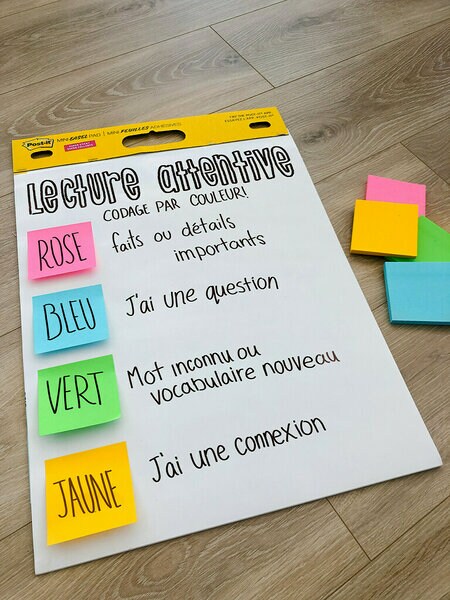 Post-it
MINI EASEL PAD | MINI FEUILLES
Lecture attentive
CODAGE PAR COULEUR!
ROSE
faits ou détails
importants
BLEU
J'ai une question
VERT
Mot inconnu ou
vocabulaire nouveau
JAUNE
J'ai une connexion